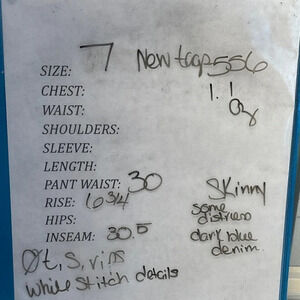 SIZE: 7 New tags 556
CHEST: 1.1 oz
WAIST:
SHOULDERS:
SLEEVE:
LENGTH:
PANT WAIST: 30
RISE: 10 3/4 Skinny
HIPS: some distress
INSEAM: 30.5 dark blue denim.
0t, S, rips
while stitch details